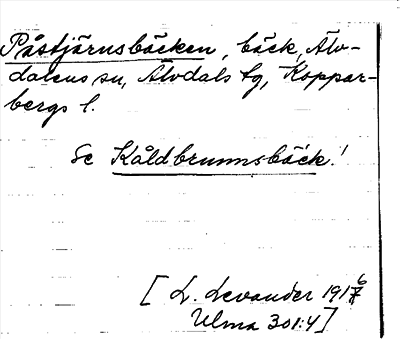 Påstjärnsbäcken, bäck, Älv-
dalens sn, Älvdals tg, Koppar-
bergs l.
Se Kåldbrunnsbäck!
[L. Levander 1916
Ulma 301:4]